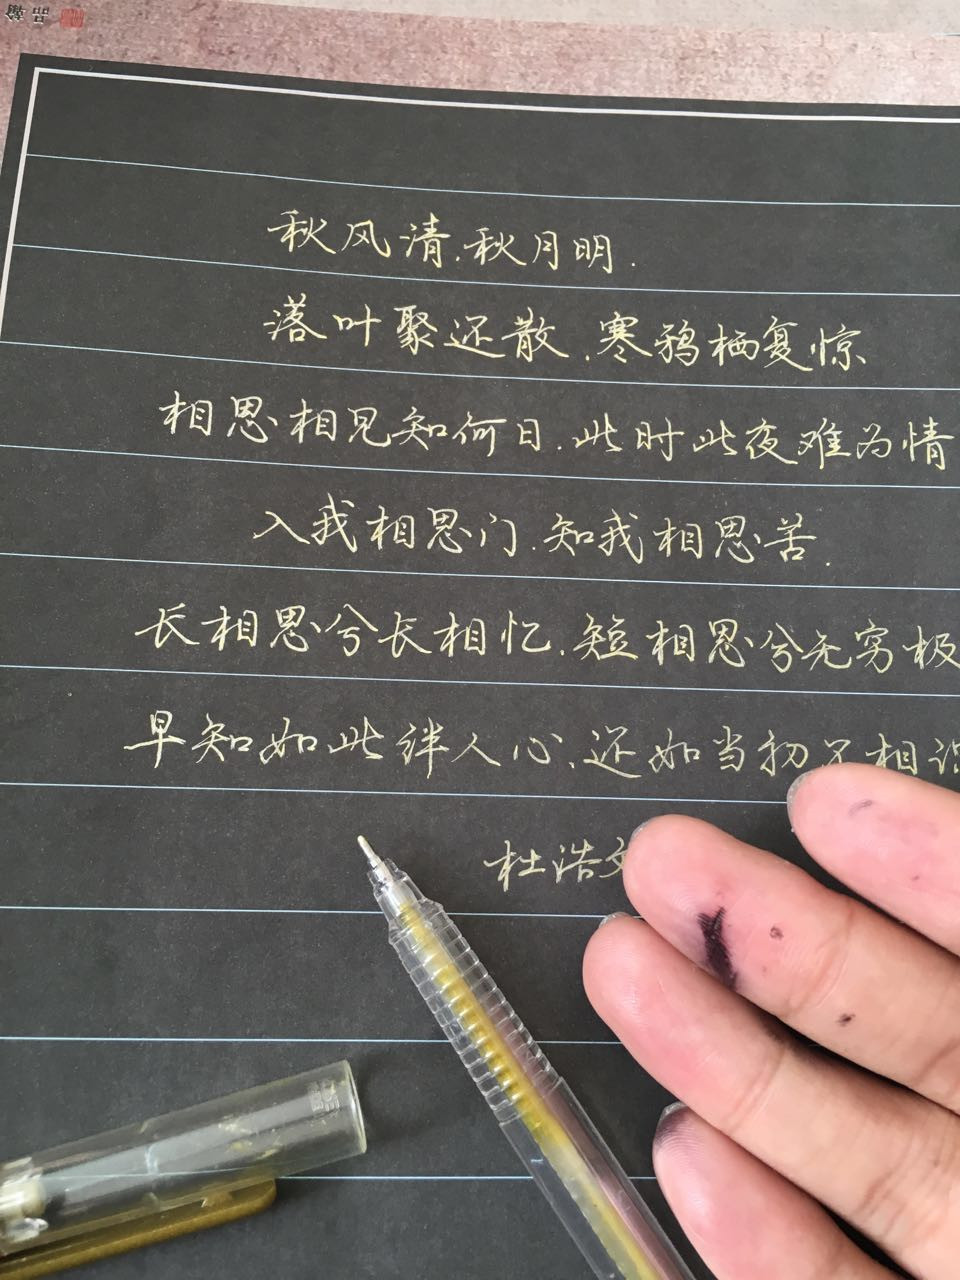 秋风清.秋月明.
落叶聚还散.寒鸦栖复惊
相思相见知何日.此时此夜难为情
入我相思门.知我相思苦.
长相思兮长相忆.短相思兮无穷极
早知如此绊人心.还如当初不相识
杜浩文